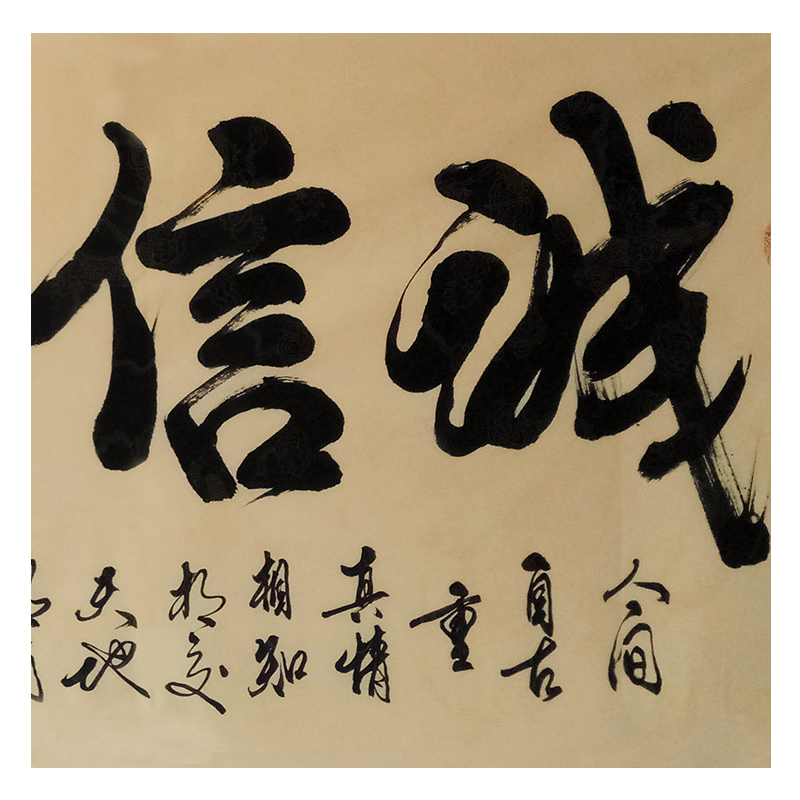 誠信
人间
自古
重
真情
相知
相交
天地